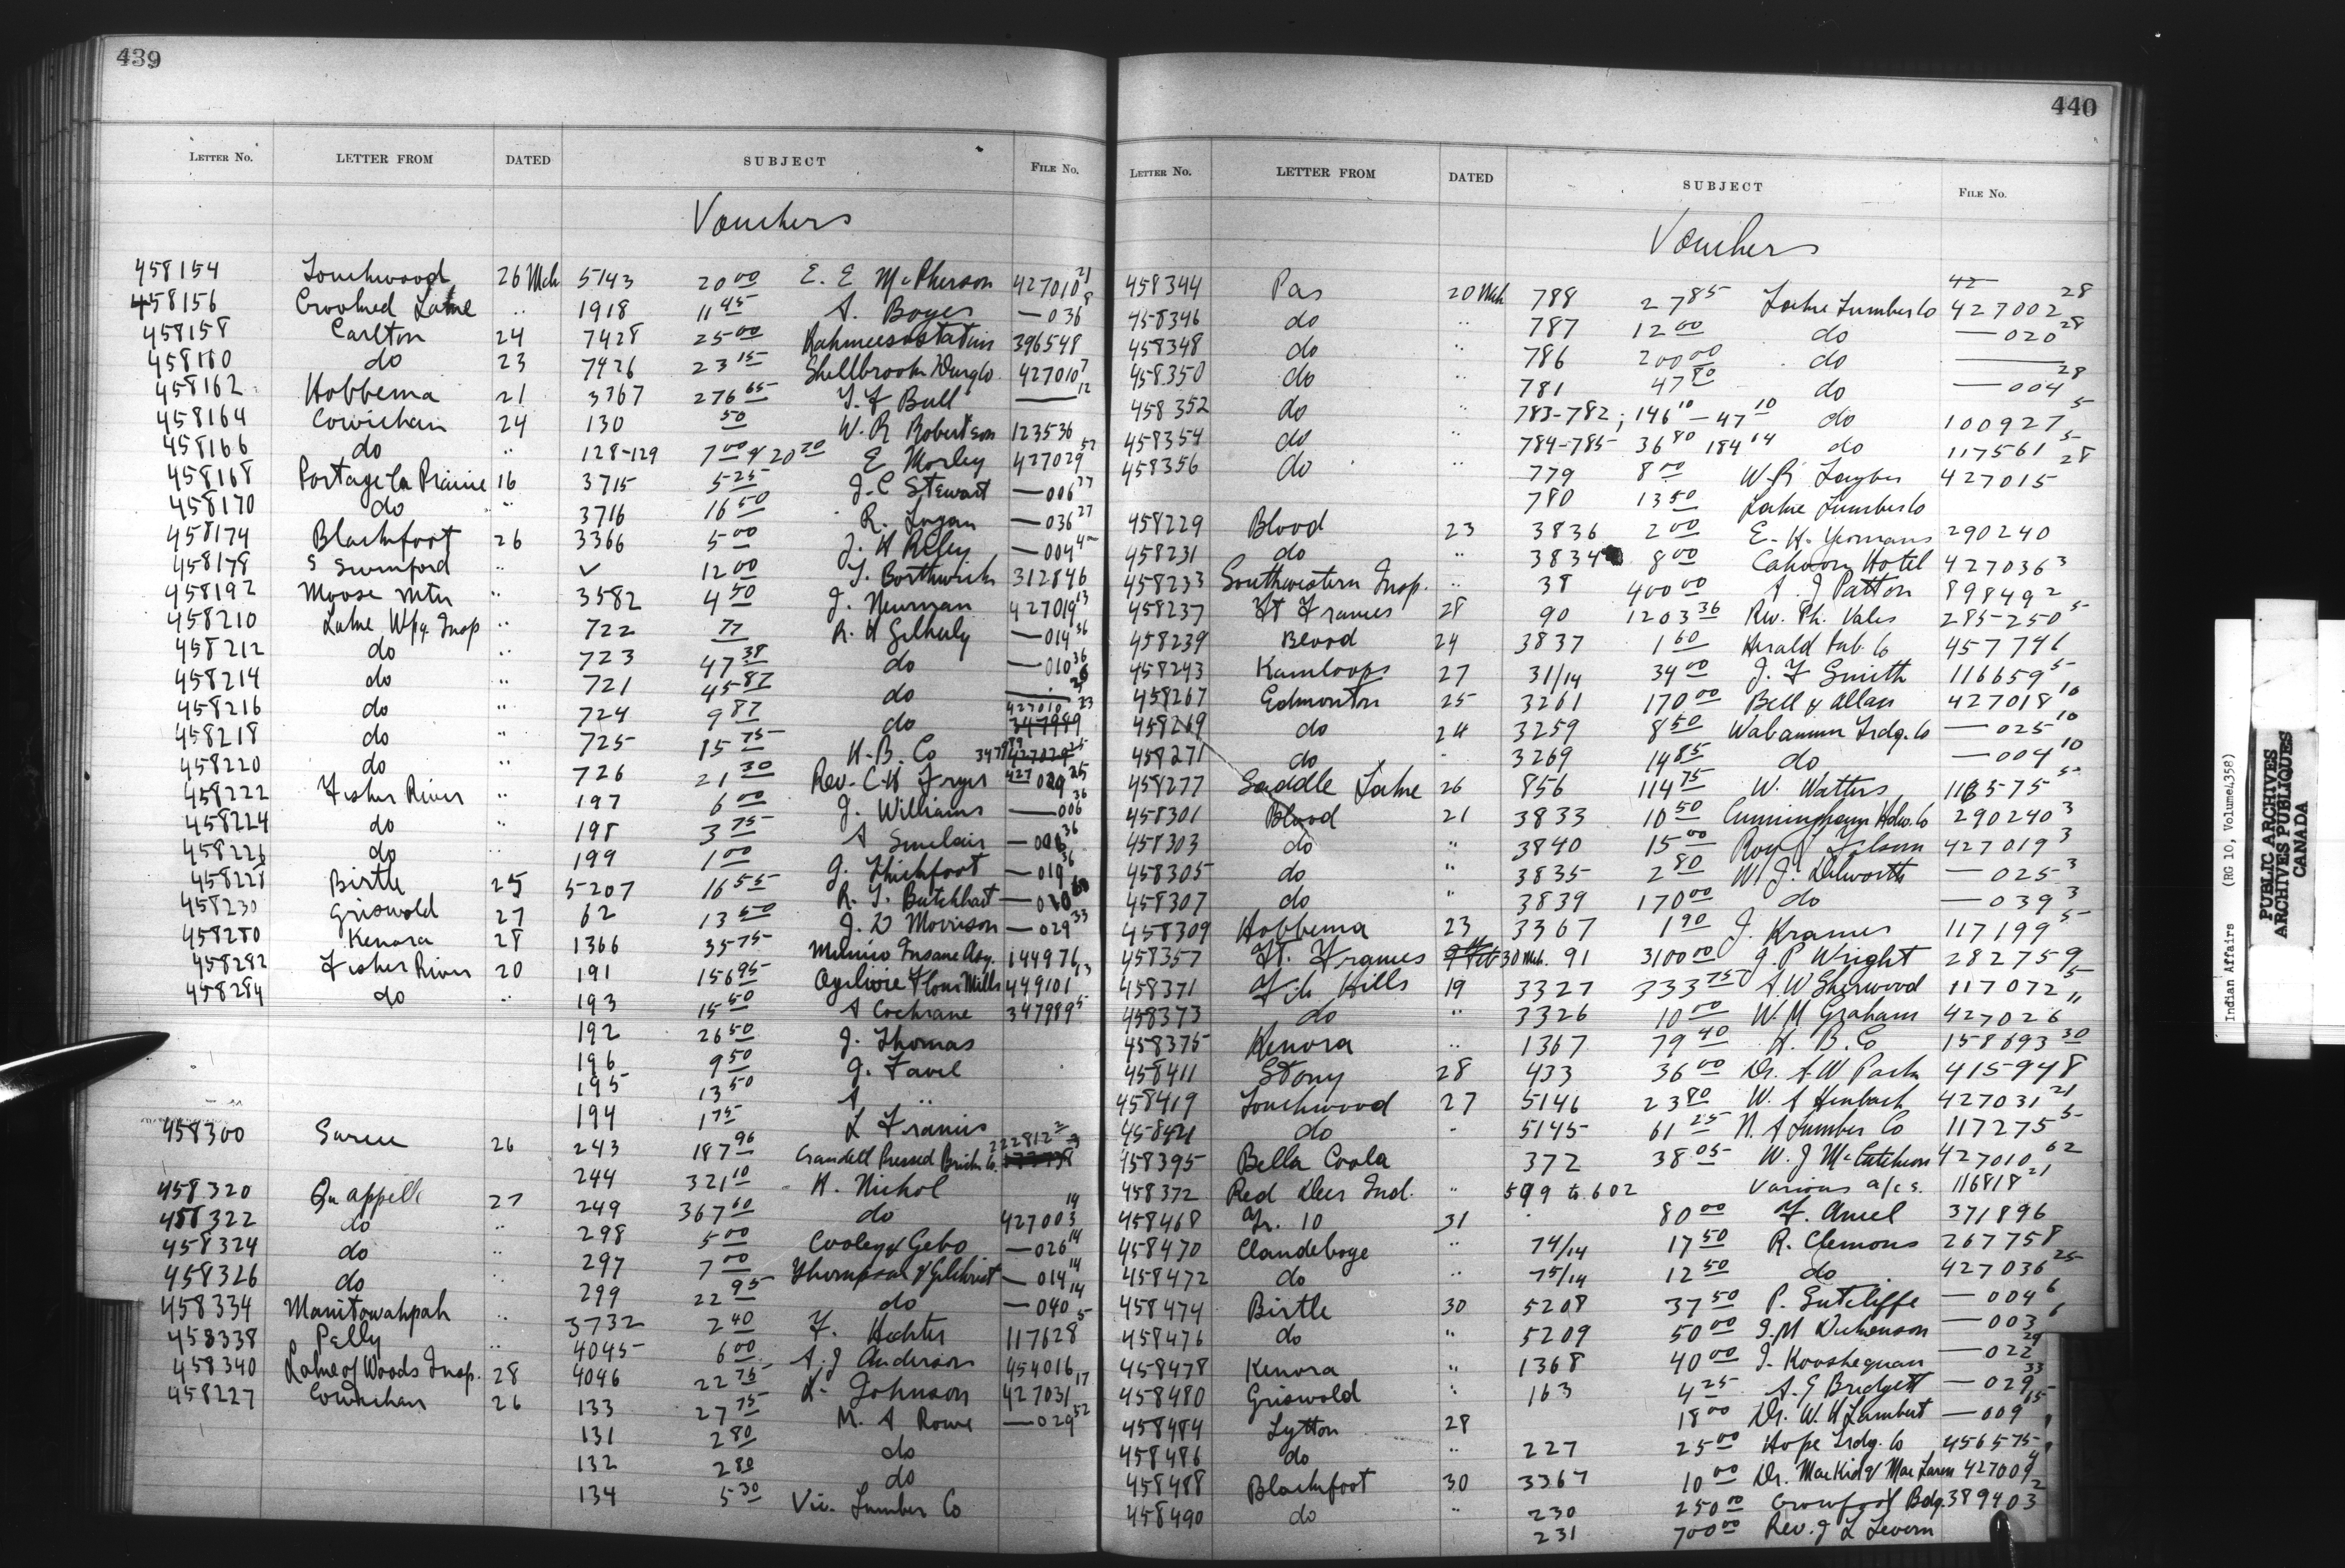 439
LETTER NO. LETTER FROM DATED SUBJECT FILE NO.
Vouchers
458154 Touchwood 26 Mch 5143 20 00 E. E McPherson 427010 21
458156 Crooked Lake " 1918 11 45 A. Boyer — 036 8
458158 Carlton 24 7428 25 00 Kahmeesostatim 396548
458160 do 23 7426 23 15 Shellbrook Drug Co. 427010 7
458162 Hobbema 21 3367 276 65 T. F Bull — 12
458164 Cowichan 24 130 50 W. R Robertson 123536
458166 do " 128-129 7 00 & 20 20 E Morley 427029 52
458168 Portage la Prairie 16 3715 5 25 J. C Stewart — 006 27
458170 do " 3716 16 50 R. Logan — 036 27
458174 Blackfoot 26 3366 5 00 J. H Riley — 004
458178 S Swinford " ✓ 12 00 T. Borthwick 312846
458192 Moose Mtn " 3582 4 50 J. Newman 427019 13
458210 Lake Wpg. Insp " 722 77 R. H Gilhuly — 014 36
458212 do " 723 47 38 do — 010 36
458214 do " 721 45 87 do —
458216 do " 724 9 87 do 427010 23 347989
458218 do " 725 15 75 H. B. Co 347989 427029 25
458220 do " 726 21 30 Rev. C. H Fryer 427 029 25
458222 Fisher River " 197 6 00 J. Williams — 006 36
458224 do " 198 3 75 A Sinclair — 006 36
458226 do " 199 1 00 J. Thickfoot — 019 36
458228 Birtle 25 5207 16 55 R. T. Butchhart — 010
458230 Griswold 27 62 13 50 J. D Morrison — 029 33
458280 Kenora 28 1366 35 75 Mimico Insane Asy. 144976
458282 Fisher River 20 191 156 95 Ogilvie Flour Mills 449101 23
458284 do " 193 15 50 A Cochrane 347989 5
192 26 50 J. Thomas
196 9 50 J. Favel
195 13 50 A "
194 1 75 L Francis
458300 Sarcee 26 243 187 96 Crandell Pressed Brick Co. 222812 2
244 321 10 H. Nickol
458320 Qu'appelle 27 249 367 60 do 427003 14
458322 do " 298 5 00 Cooley & Gebo — 026 14
458324 do " 297 7 00 Thompson & Gilchrist — 014 14
458326 do " 299 22 95 do — 040 14
458334 Manitowahpah " 3732 2 40 F. Hechter 117628 5
458338 Pelly " 4045 6 00 A. J Anderson 454016
458340 Lake of Woods Insp. 28 4046 22 75 K. Johnson 427031 17
458227 Cowichan 26 133 27 75 M. A Rowe — 029 52
131 2 80 do
132 2 80 do
134 5 30 Vic. Lumber Co
440
LETTER NO. LETTER FROM DATED SUBJECT FILE NO.
Vouchers
42
458344 Pas 20 Mch 788 27 85 Lake Lumber Co 427002 28
458346 do " 787 12 00 do — 020 28
458348 do " 786 200 00 do —
458350 do 781 47 80 do — 004 28
458352 do " 783-782; 146 10 — 47 10 do 100927 5
458354 do " 784-785 36 80 184 14 do 117561 5
458356 do " 779 8 00 W. R 427015 28
780 13 50 Lake Lumber Co
458229 Blood 23 3836 2 00 E. H. Yeomans 290240
458231 do " 3834 8 00 Cahoon Hotel 427036 3
458233 Southwestern Insp. " 38 400 00 A. J Patton 898492
458237 Ft Frances 28 90 1203 36 Rev. Ph. Vales 285250 5
458239 Blood 24 3837 1 60 Herald Pub. Co 457746
458243 Kamloops 27 31/14 34 00 J. F Smith 116659 5
458267 Edmonton 25 3261 170 00 Bell & Allan 427018 10
458269 do 24 3259 8 50 Wabamun Trdg. Co — 025 10
458271 do " 3269 14 85 do — 004 10
458277 Saddle Lake 26 856 114 75 W. Watters 118575 5
458301 Blood 21 3833 10 50 Cunningham Hdw. Co 290240 3
458303 do " 3840 15 00 Roy 427019 3
458305 do " 3835 2 80 W. J. Dilworth — 025 3
458307 do " 3839 170 00 do — 039 3
458309 Hobbema 23 3367 1 90 J. Kramer 117199 5
458357 Ft. Frances 30 Mch. 91 3100 00 J. P Wright 282759
458371 File Hills 19 3327 333 75 A. W Sherwood 117072 5
458373 do " 3326 10 00 W. M Graham 427026 11
458375 Kenora " 1367 79 40 H. B. Co 158693 30
458411 Stony 28 433 36 00 Dr. A. W Park 415948
458419 Touchwood 27 5146 23 80 W. A Heubach 427031 21
458421 do " 5145 61 25 N. A Lumber Co 117275 5
458395 Bella Coola 372 38 05 W. J McCutcheon 427010 62
458372 Red Deer Ind. " 599 to 602 Various a/cs. 116818 21
458468 Tr. 10 31 80 00 F. Amiel 371896
458470 Clandeboye " 74/14 17 50 R. Clemons 267758
458472 do " 75/14 12 50 do 427036 25
458474 Birtle 30 5208 37 50 P. Sutcliffe — 004 6
458476 do " 5209 50 00 J. M Dickenson — 003 6
458478 Kenora " 1368 40 00 J. Kooshequan — 022 29
458480 Griswold " 163 4 25 A. E Bridgett — 029 33
458484 Lytton 28 18 00 Dr. W. H Lambert — 009 65
458486 do " 227 25 00 Hope Trdg. Co 456575
458488 Blackfoot 30 3367 10 00 Dr. MacKid & MacLaren 427009 4
458490 do " 230 250 00 Crowfoot Bdg. 389403 2
231 700 00 Rev. J L Levern
Indian Affairs (RG 10, Volume 4358)
PUBLIC ARCHIVES
ARCHIVES PUBLIQUES
CANADA